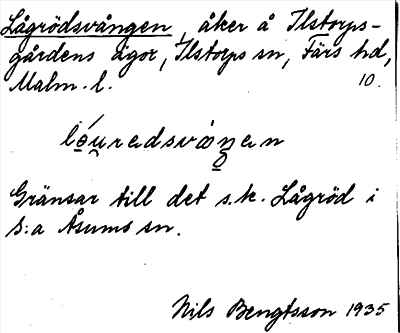 Lågrödsvången, åker å Ilstorps-
gårdens ägor, Ilstorps sn, Färs hd,
Malm. l. 10.
lóu̯radsvåŋan
Gränsar till det s.k. Lågröd i
S:a Åsums sn.
Nils Bengtsson 1935